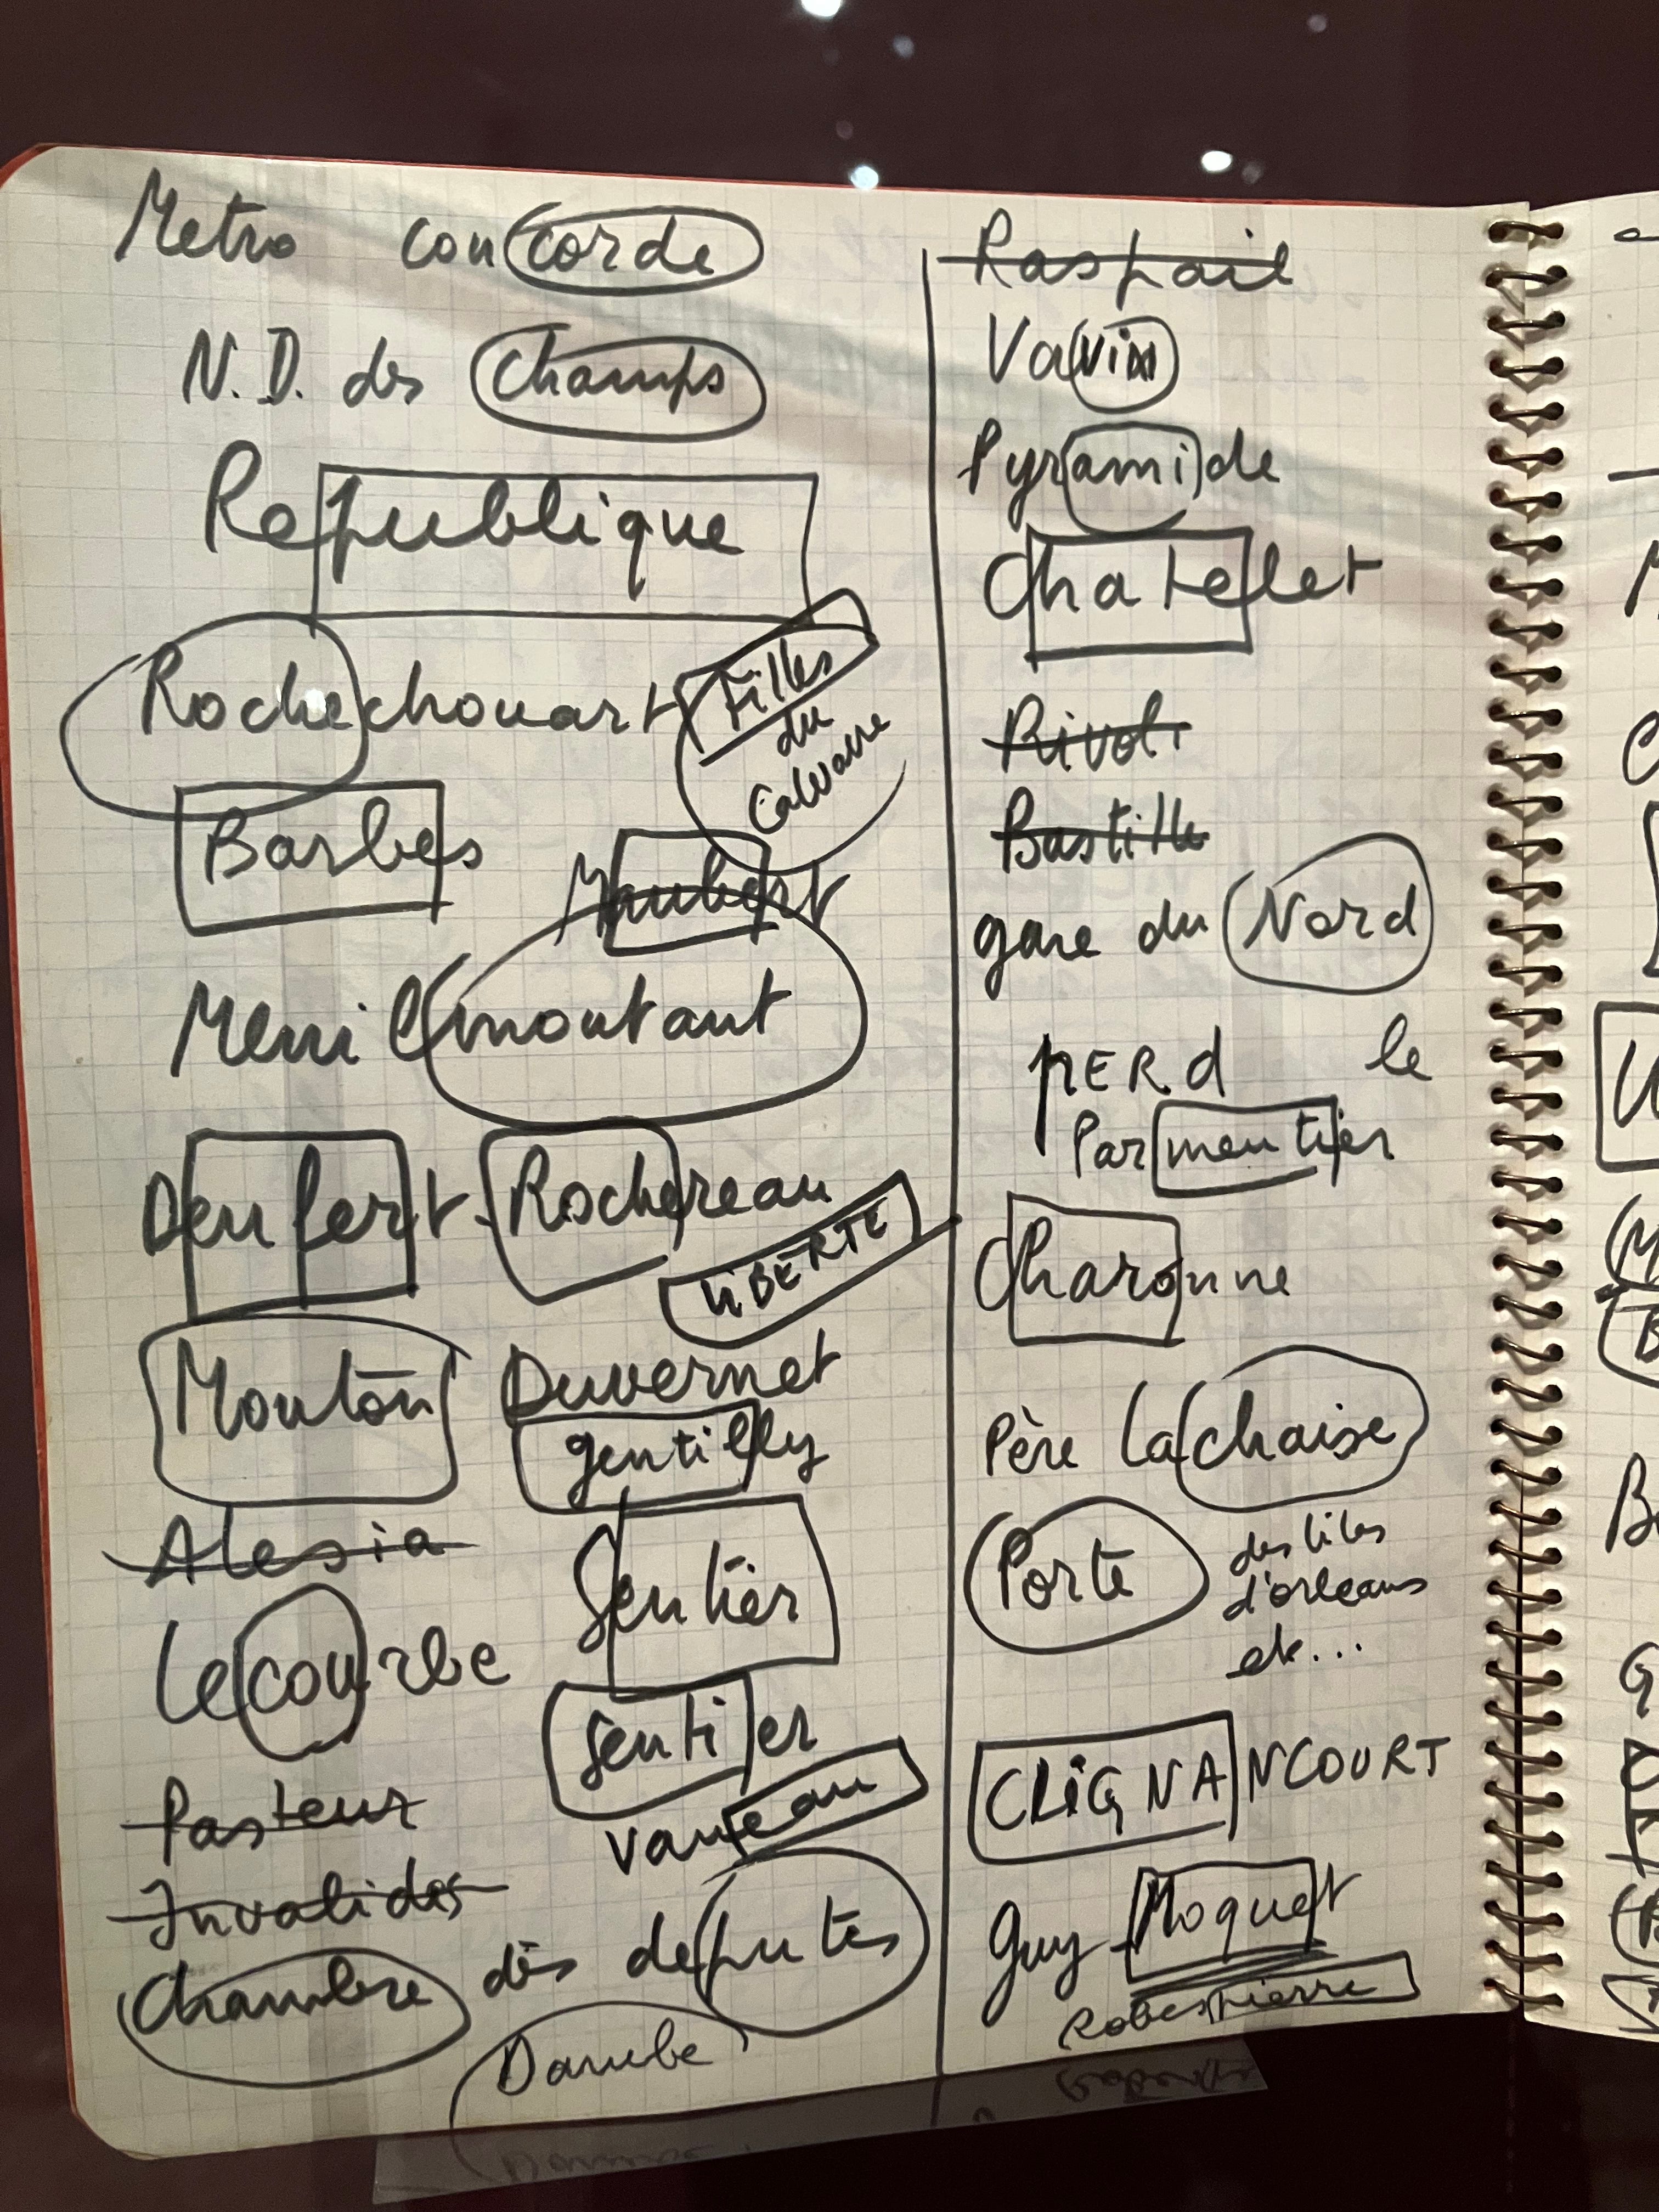 Metro concorde
N.D. des Champs
Republique
Rochechouart
Filles
du
Calvaire
Barbes
Maubert
Menilmontant
Denfert-Rochereau
LiBERTE
Mouton Duvernet
gentilly
Alesia
Sentier
Lecourbe
Sentier
Vaneau
Pasteur
Invalides
Chambre des deputes
Danube
Raspail
Vavin
Pyramide
Chatelet
Rivoli
Bastille
gare du Nord
pERd le
Parmentier
Charonne
Père Lachaise
Porte
des lilas
d'orleans
etc...
CLiGNANCOURT
Guy Moquet
Robespierre